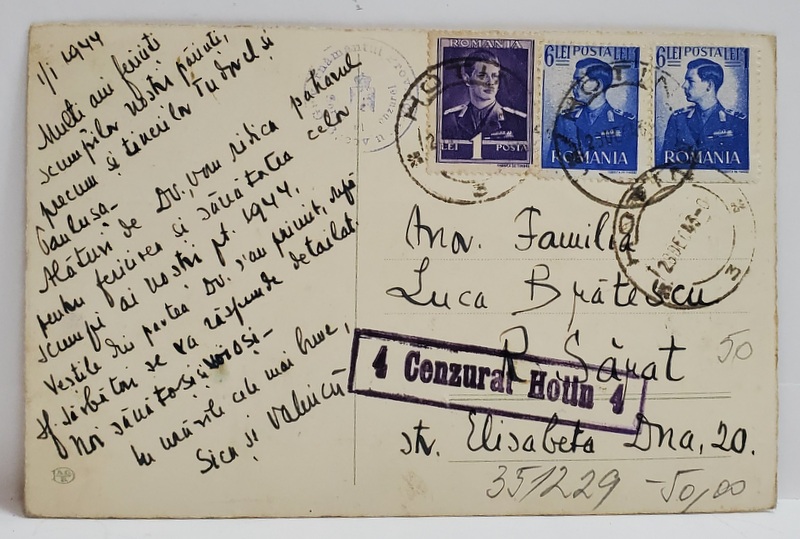 1/1 1944
Mulți ani fericiți
scumpilor noștri părinți,
precum și tinerilor Tudorel și
Paulusa.
Alături de Dv, vom ridica paharul
pentru fericirea și sănătatea celor
scumpi ai noștri pt. 1944.
Veștile din partea Dv. s'au primit, după
sf. sărbători se va răspunde detailat.
Noi sănătoși și voioși
cu urările cele mai bune,
Sica și Valericu
ROMANIA
LEI 1 POSTA
6 LEI POSTA LEI
ROMANIA
6 LEI POSTA LEI
ROMANIA
HOTIN
HOTIN
HOTIN
29 DEC 43
3
Onor. Familia
Luca Brătescu
R. Sărat
4 Cenzurat Hotin 4
str. Elisabeta Dna, 20.
50
351229 -50,00